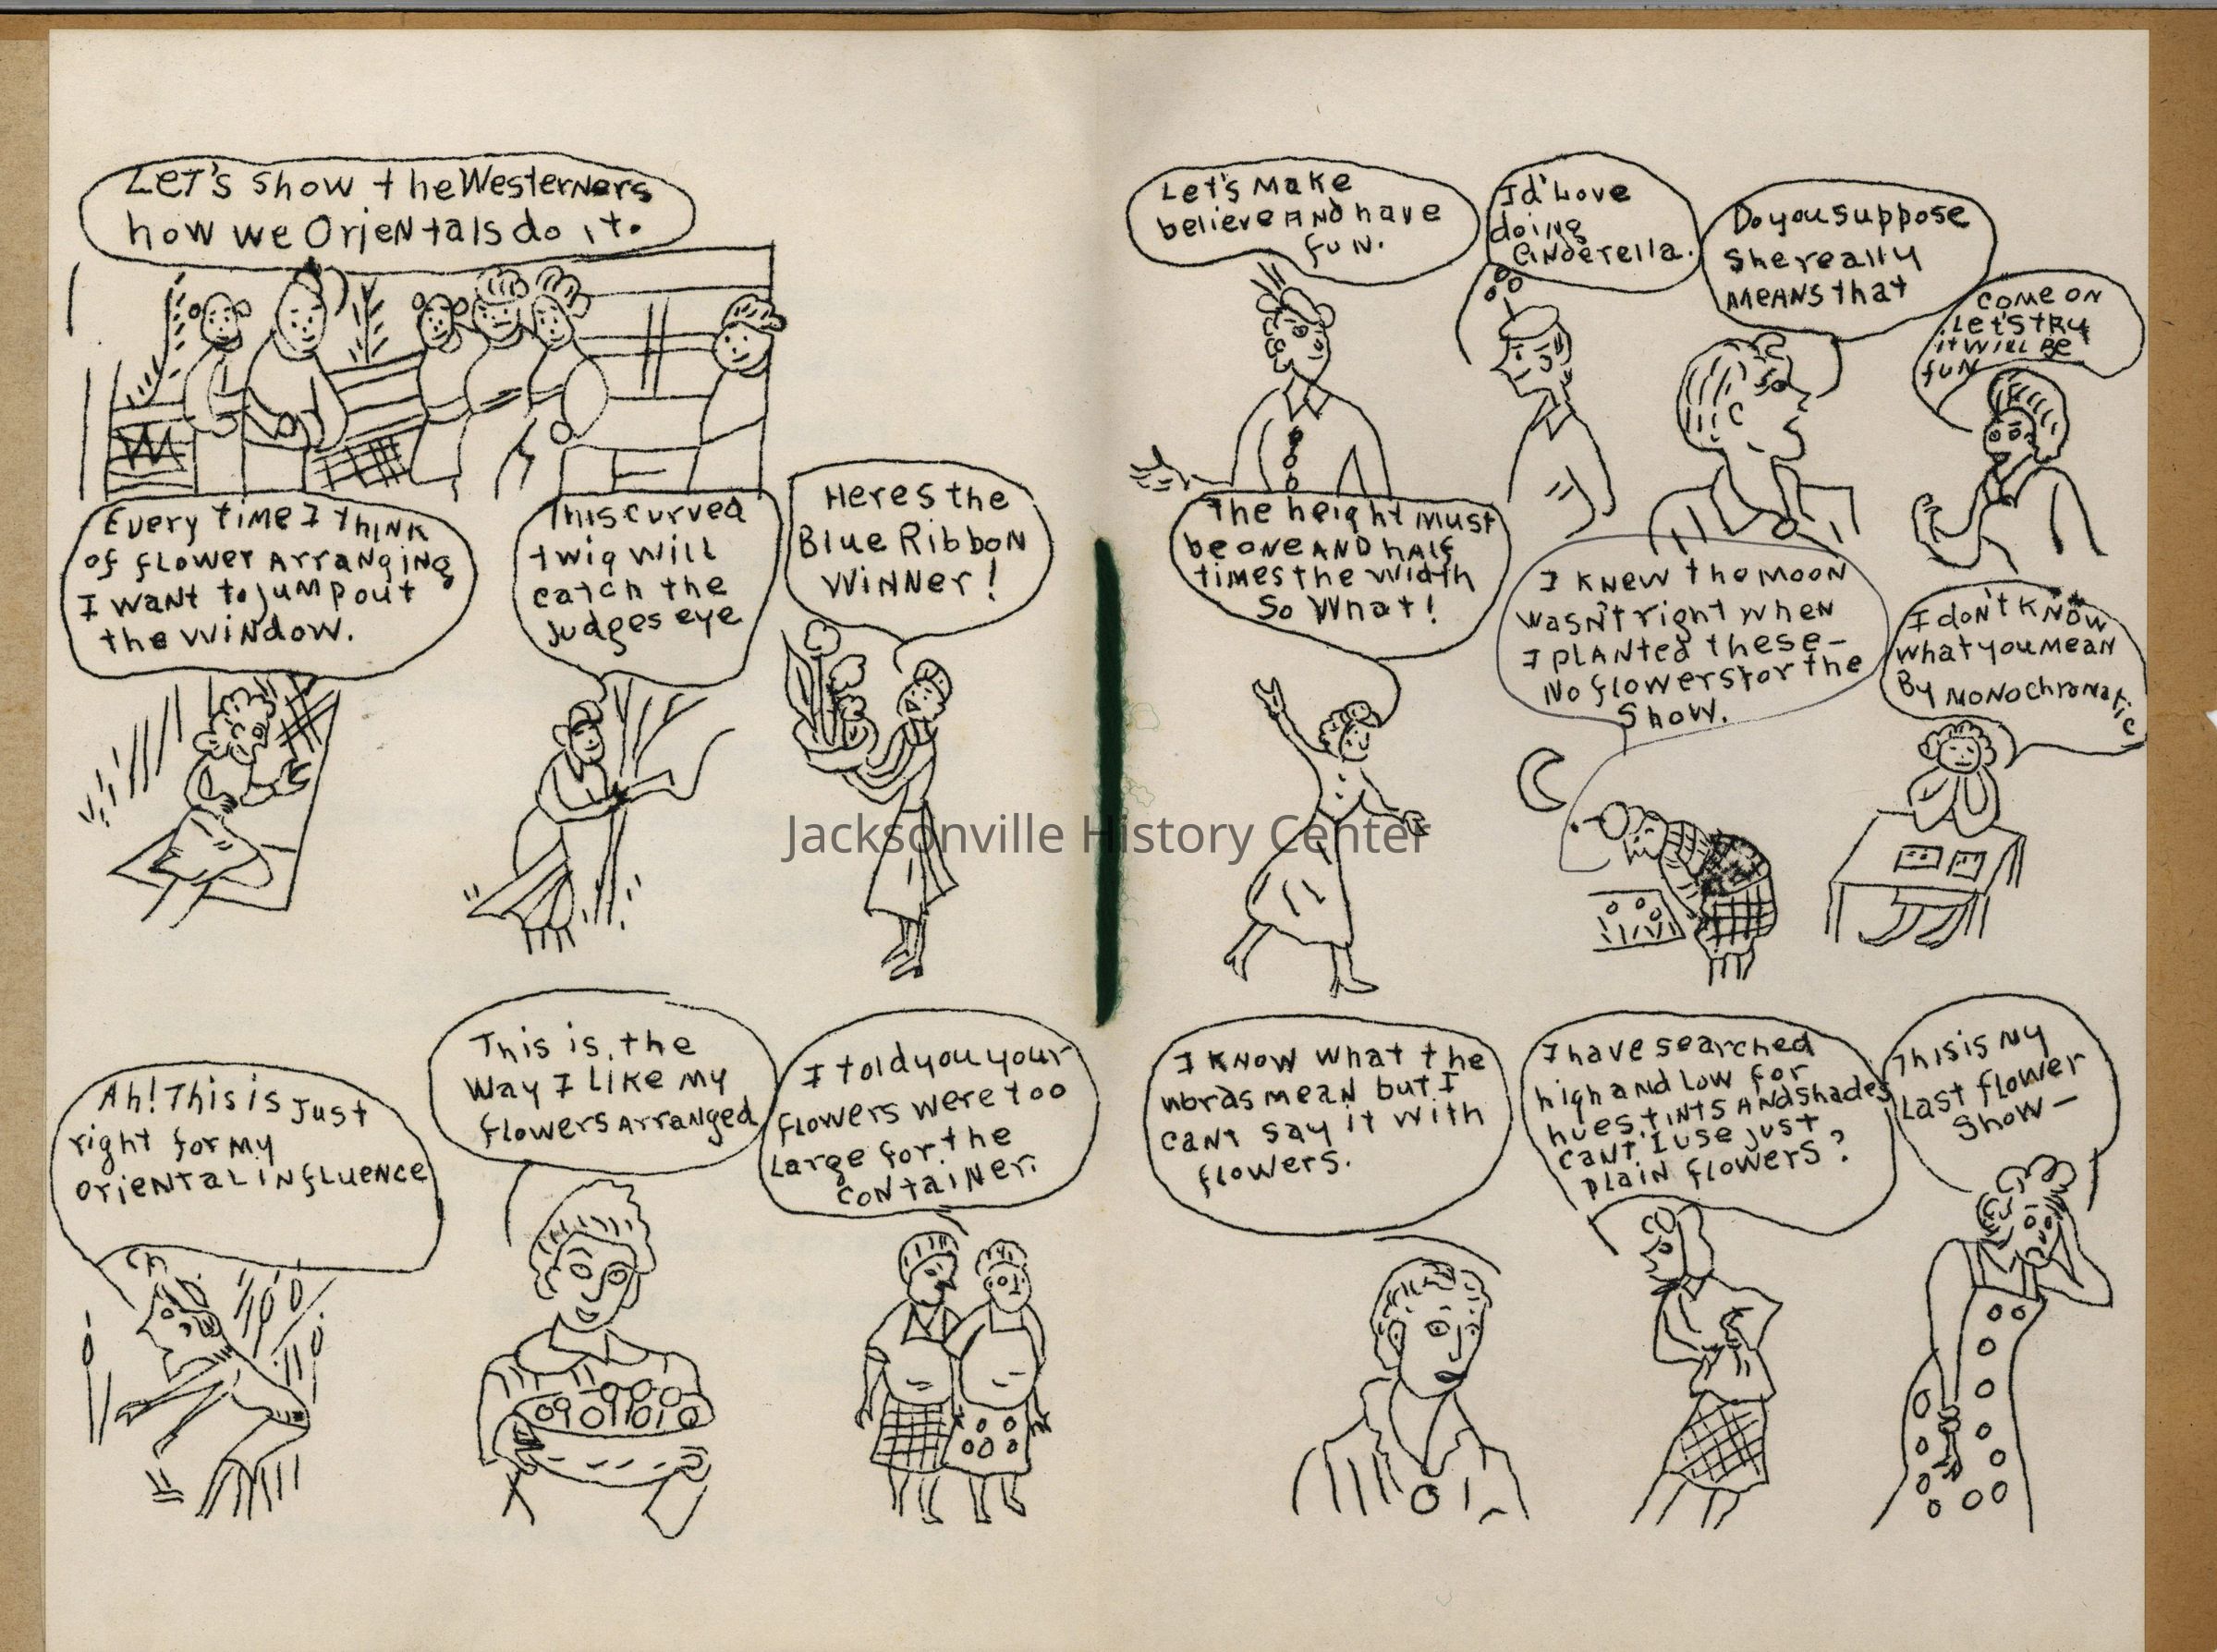 LET'S show the Westerners
how we Orientals do it.
Every time I think
of flower arranging
I want to jump out
the window.
This curved
twig will
catch the
judges eye
Heres the
Blue Ribbon
Winner!
Ah! This is just
right for my
oriental influence
This is the
way I like my
flowers arranged
I told you your
flowers were too
large for the
container.
Let's make
believe and have
fun.
I'd love
doing
Cinderella.
Do you suppose
she really
means that
Come on
let's try
it will be
fun
The height must
be one and half
times the width
So What!
I knew the moon
wasn't right when
I planted these-
No flowers for the
Show.
I don't know
what you mean
By monochromatic
I know what the
words mean but I
cant say it with
flowers.
I have searched
high and low for
hues, tints and shades
cant I use just
plain flowers?
This is my
last flower
show-
Jacksonville History Center